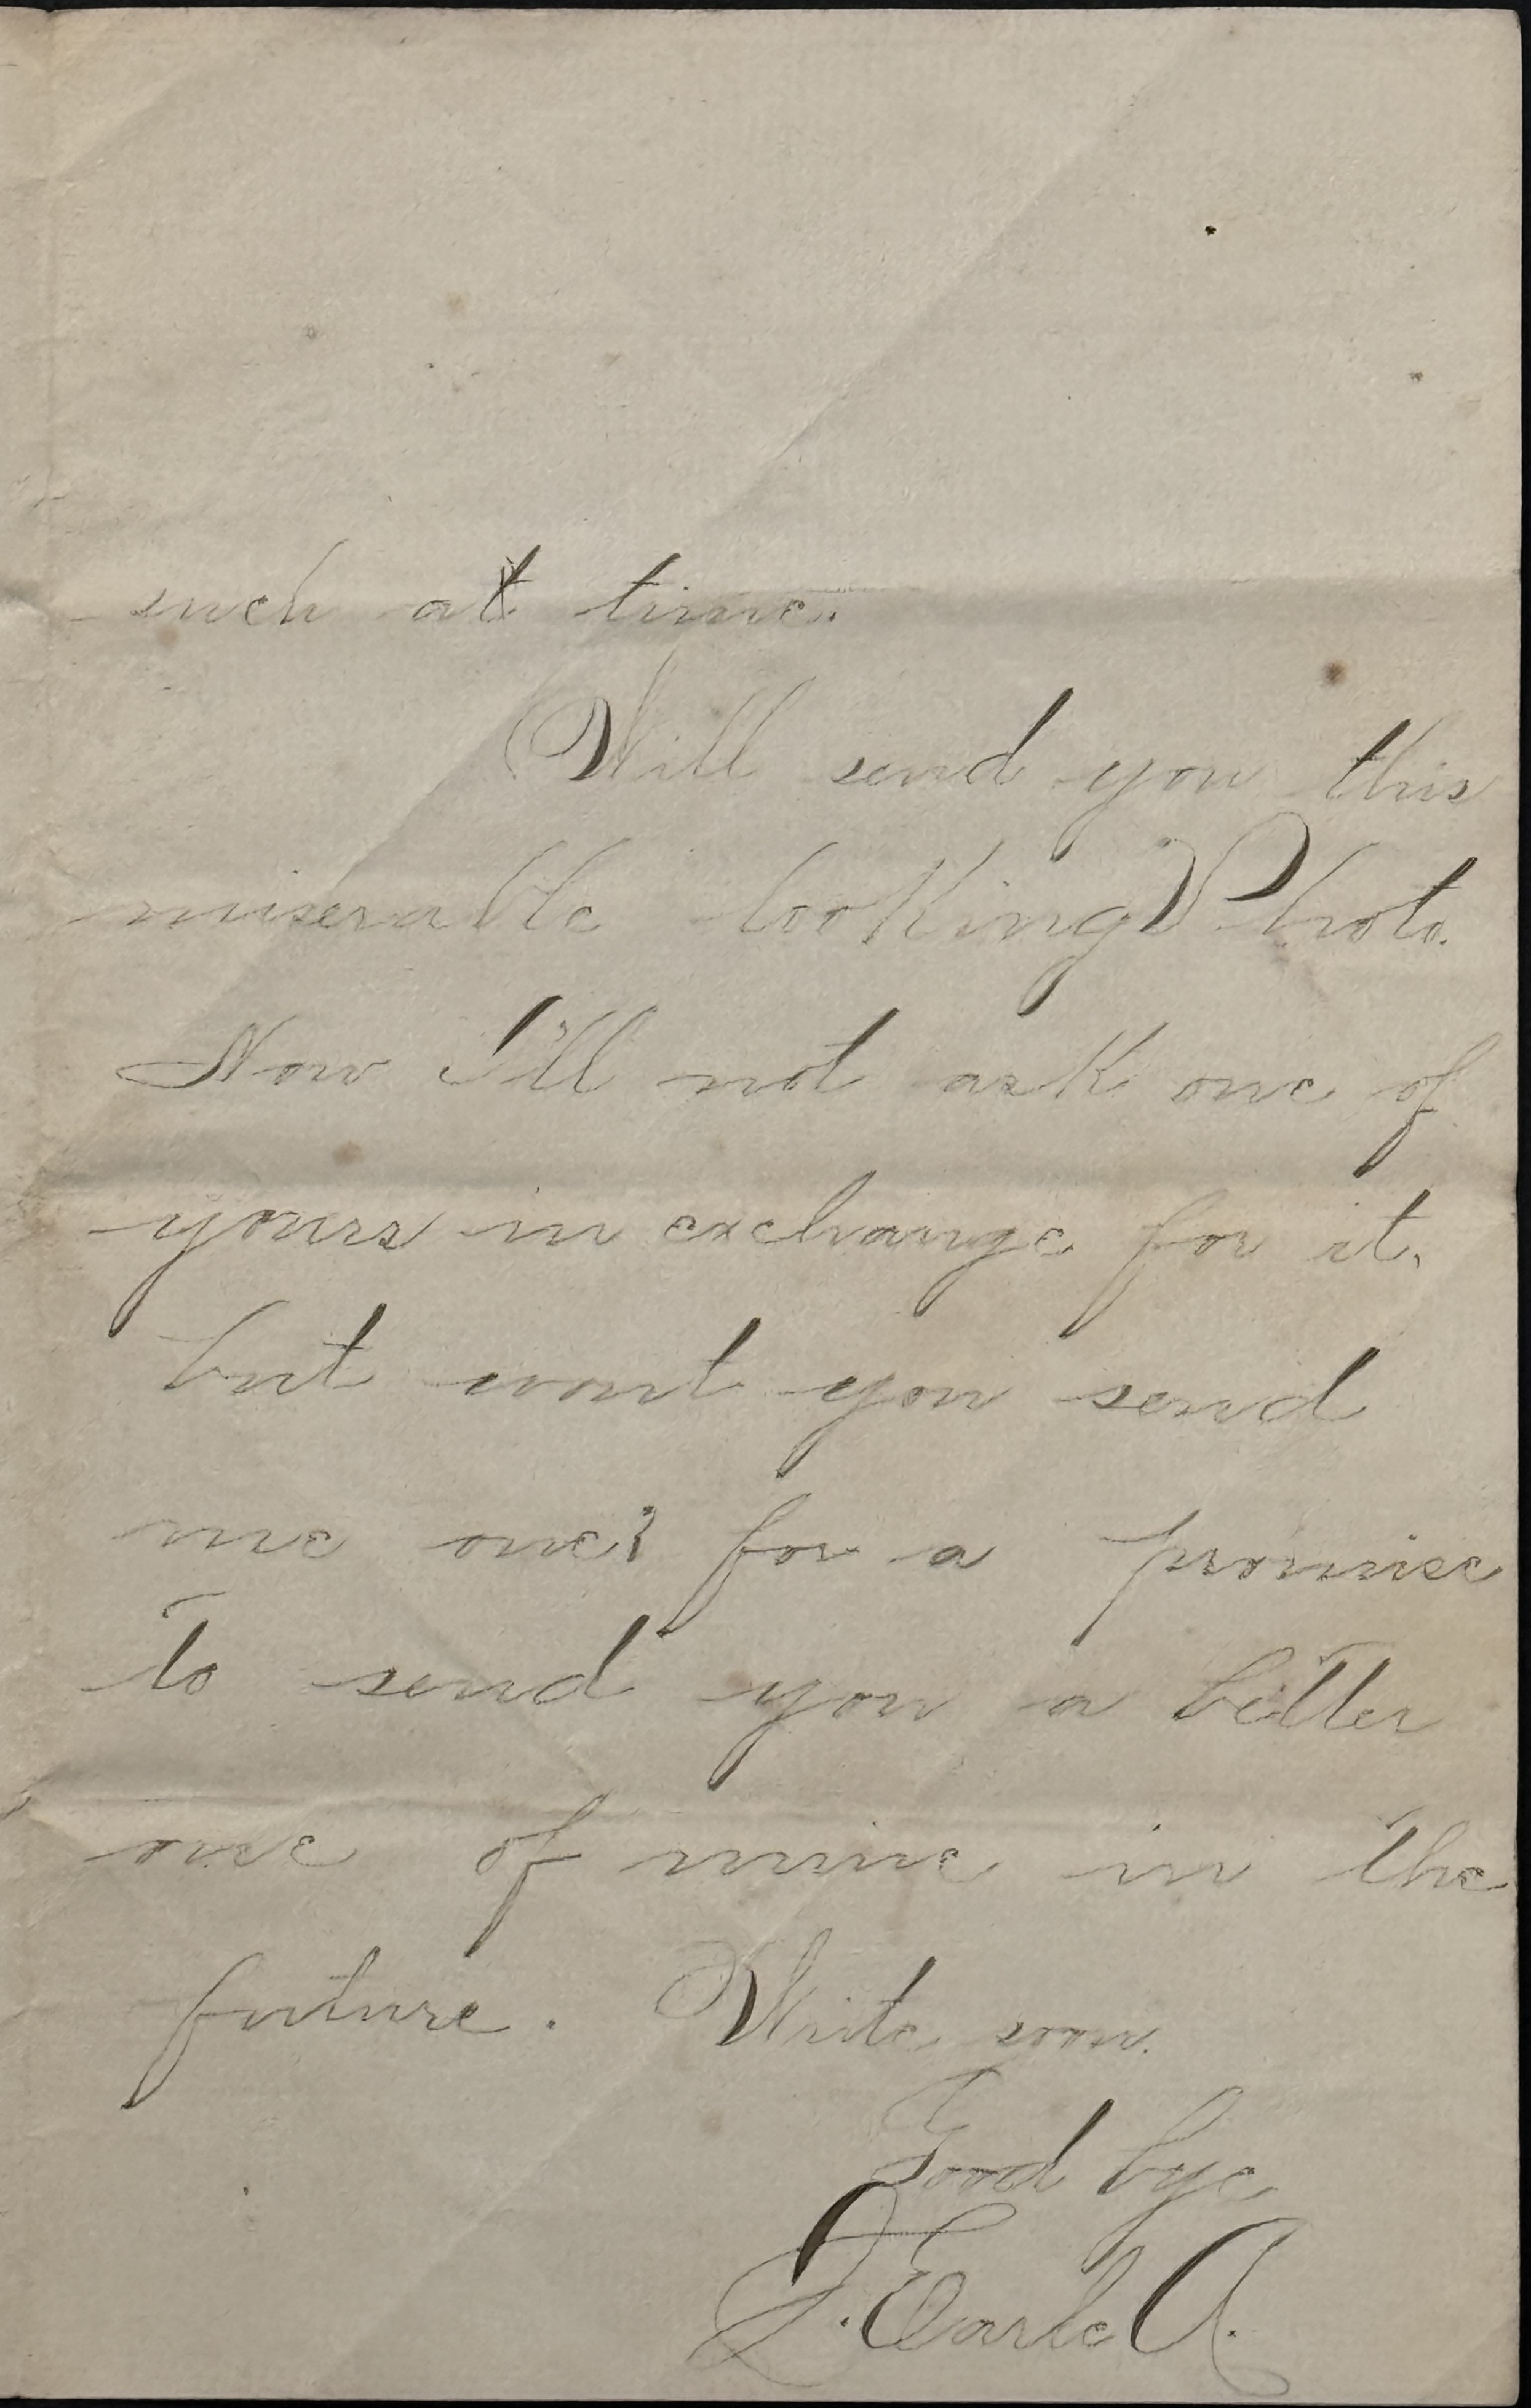 such a time.
Will send you this
miserable looking Photo.
Now I'll not ask one of
yours in exchange for it.
but wont you send
me one? for a promise
to send you a better
one of mine in the
future. Write soon.
Good bye
Earle A.